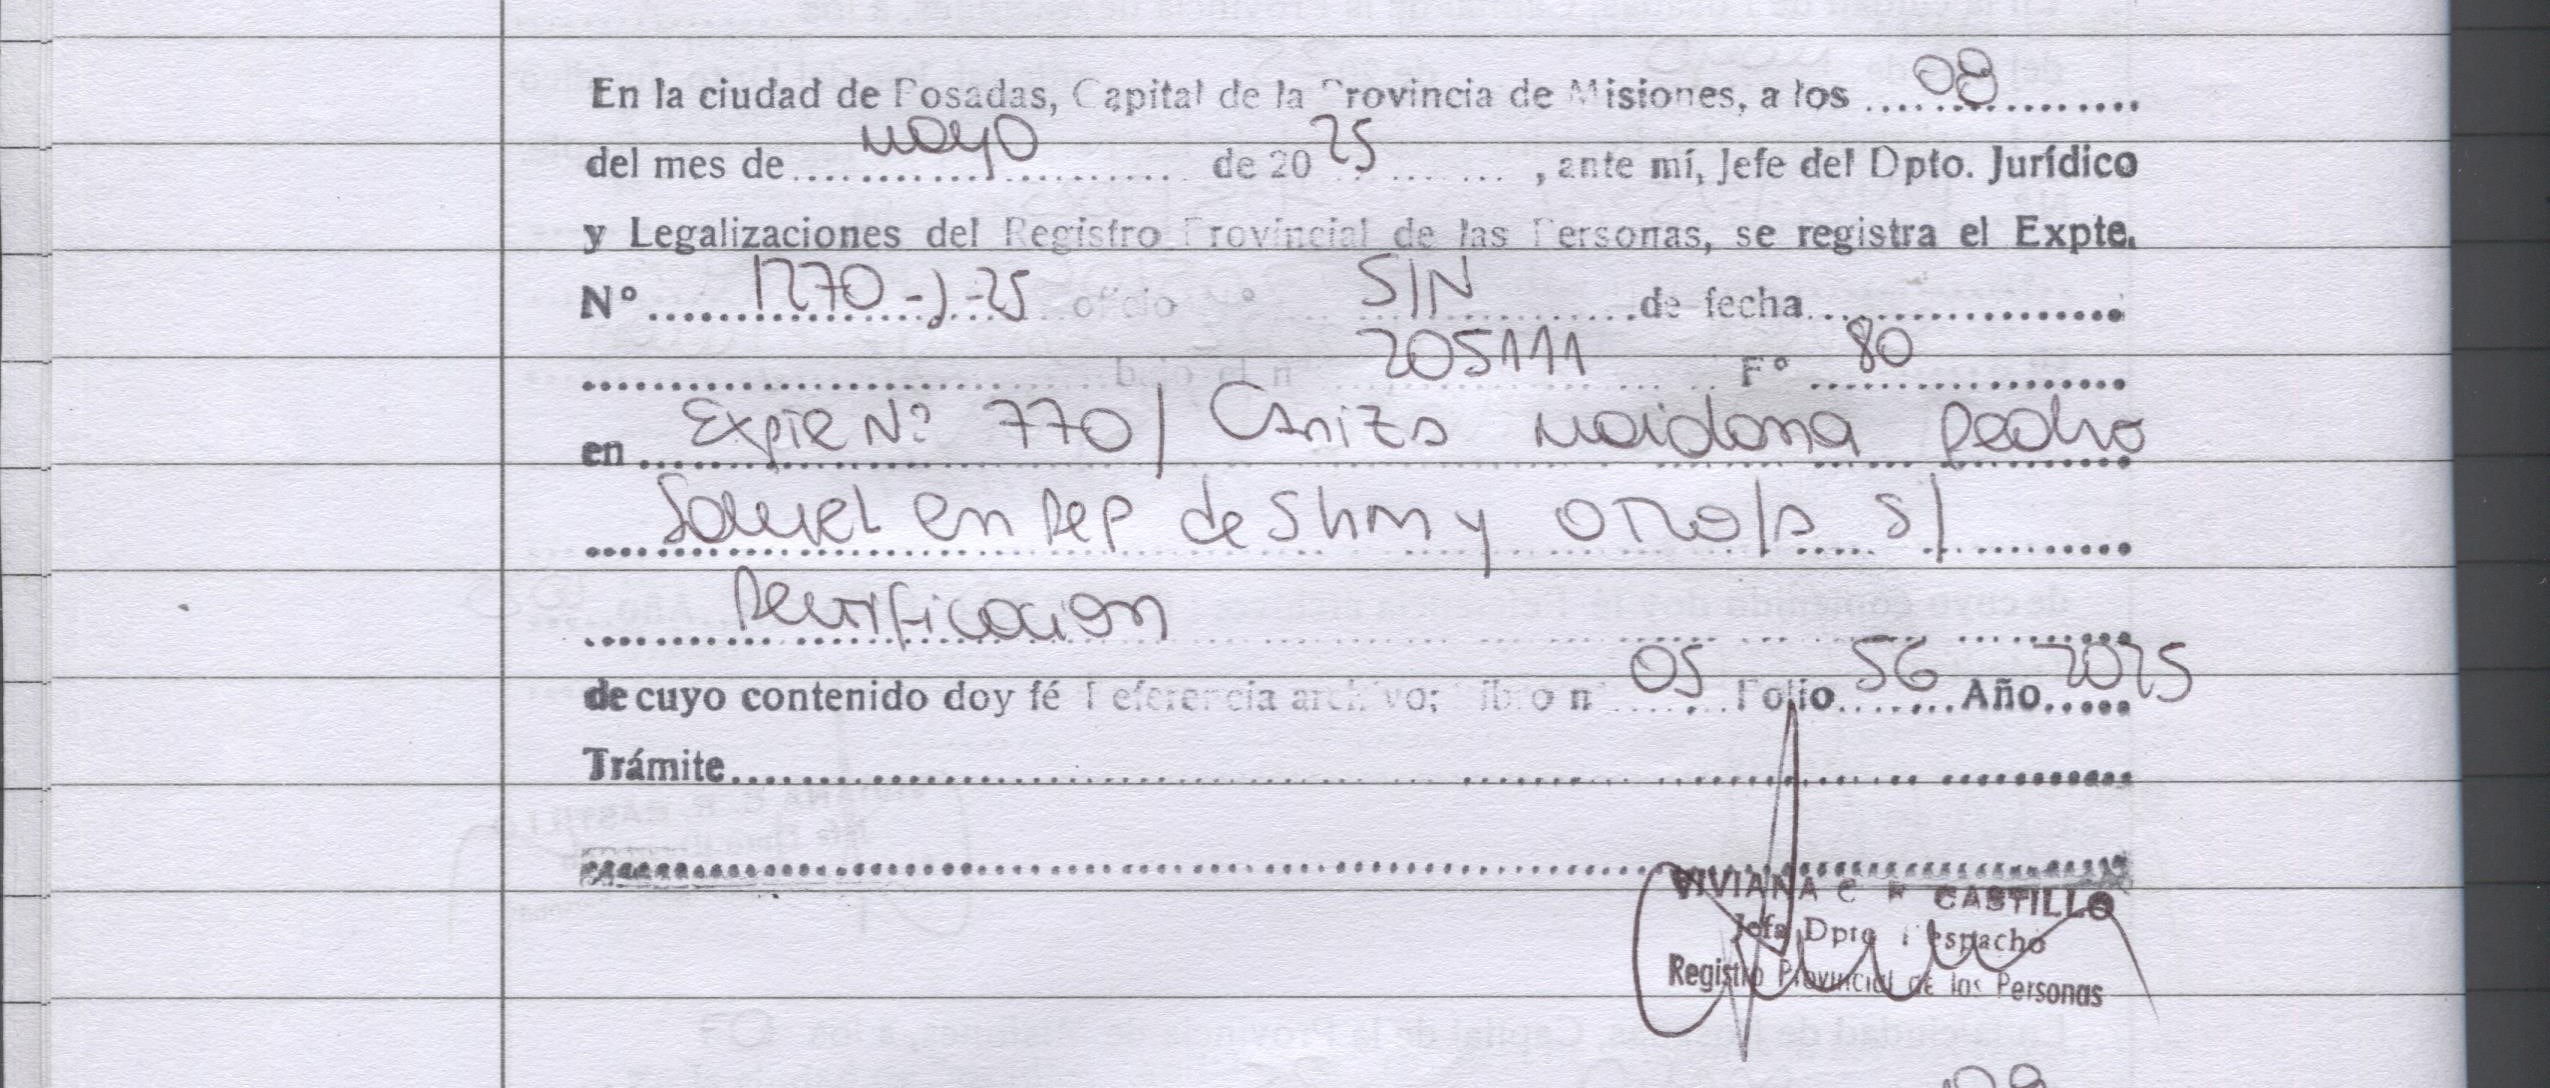 En la ciudad de Posadas, Capital de la Provincia de Misiones, a los 08
del mes de mayo de 20 25, ante mí, Jefe del Dpto. Jurídico
y Legalizaciones del Registro Provincial de las Personas, se registra el Expte.
Nº 1270-J-25 oficio Nº S/N de fecha
bajo el n 205111 Fº 80
en Expte Nº 770/ Cañizo Maidana Pedro
Samuel en Rep de Shm y otro/a s/
Rectificacion
de cuyo contenido doy fé Referencia archivo; libro nº 05 Folio 56 Año 2025
Trámite
VIVIANA C R CASTILLO
Jefa Dpto Despacho
Registro Provincial de las Personas